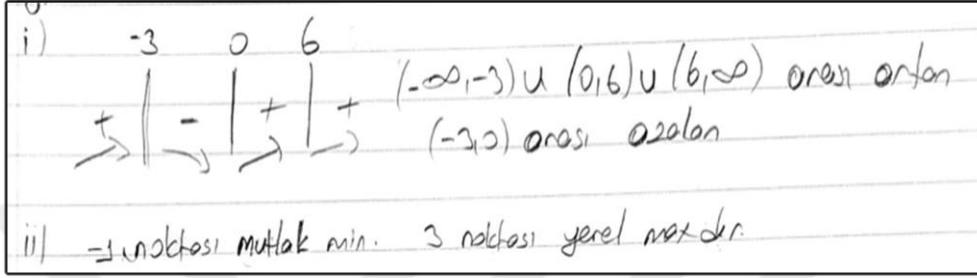 i) -3 0 6
+ - + + (-∞,-3) U (0,6) U (6,∞) arası artan
(-3,0) arası azalan
ii) -1 noktası mutlak min. 3 noktası yerel max dır.